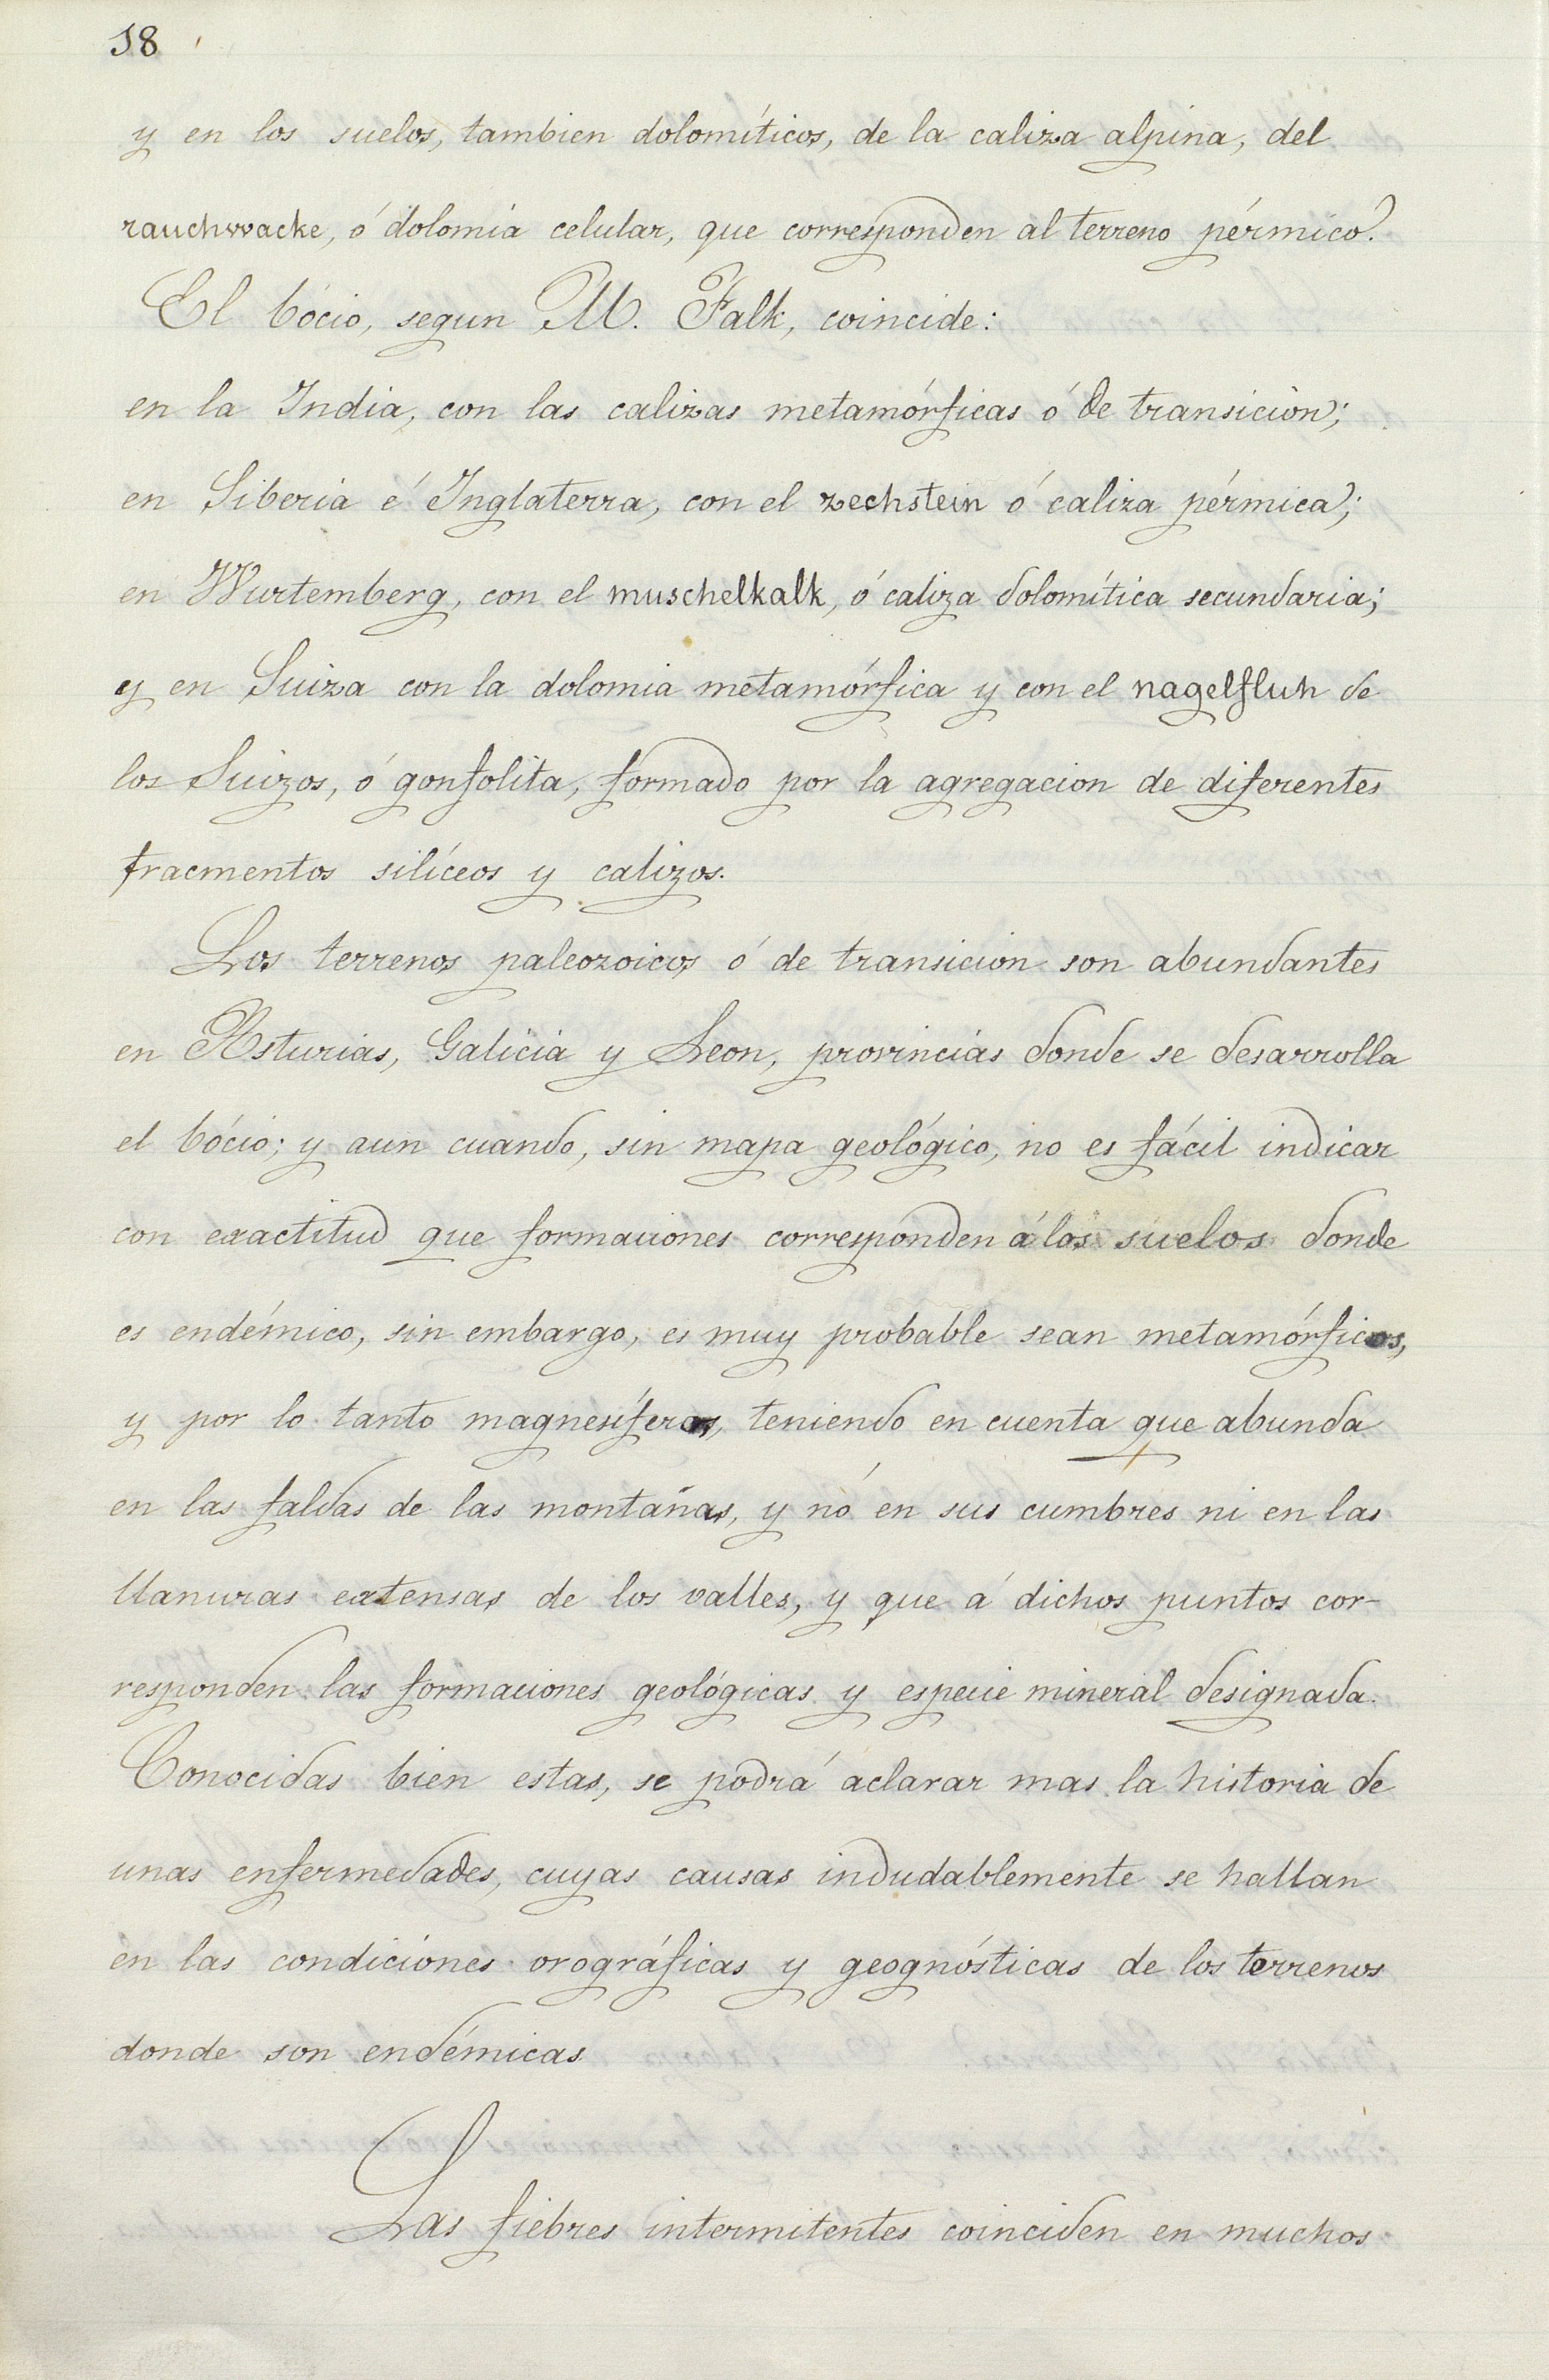 18
y en los suelos, tambien dolomíticos, de la caliza alpina, del
rauchwacke, ó dolomia celular, que corresponden al terreno pérmico.
El bócio, segun M. Falk, coincide:
en la India, con las calizas metamórficas ó de transicion;
en Siberia é Inglaterra, con el zechstein ó caliza pérmica;
en Wurtemberg, con el muschelkalk, ó caliza dolomítica secundaria;
y en Suiza con la dolomia metamórfica y con el nagelfluh de
los Suizos, ó gonfolita, formado por la agregacion de diferentes
fracmentos silíceos y calizos.
Los terrenos paleozoicos ó de transicion son abundantes
en Asturias, Galicia y Leon, provincias donde se desarrolla
el bócio; y aun cuando, sin mapa geológico, no es fácil indicar
con exactitud que formaciones corresponden á los suelos donde
es endémico, sin embargo, es muy probable sean metamórficos,
y por lo tanto magnesíferos, teniendo en cuenta que abunda
en las faldas de las montañas, y nó en sus cumbres ni en las
llanuras extensas de los valles, y que á dichos puntos cor-
responden las formaciones geológicas y especie mineral designada.
Conocidas bien estas, se podrá aclarar mas la historia de
unas enfermedades, cuyas causas indudablemente se hallan
en las condiciones orográficas y geognósticas de los terrenos
donde son endémicas
Las fiebres intermitentes coinciden en muchos